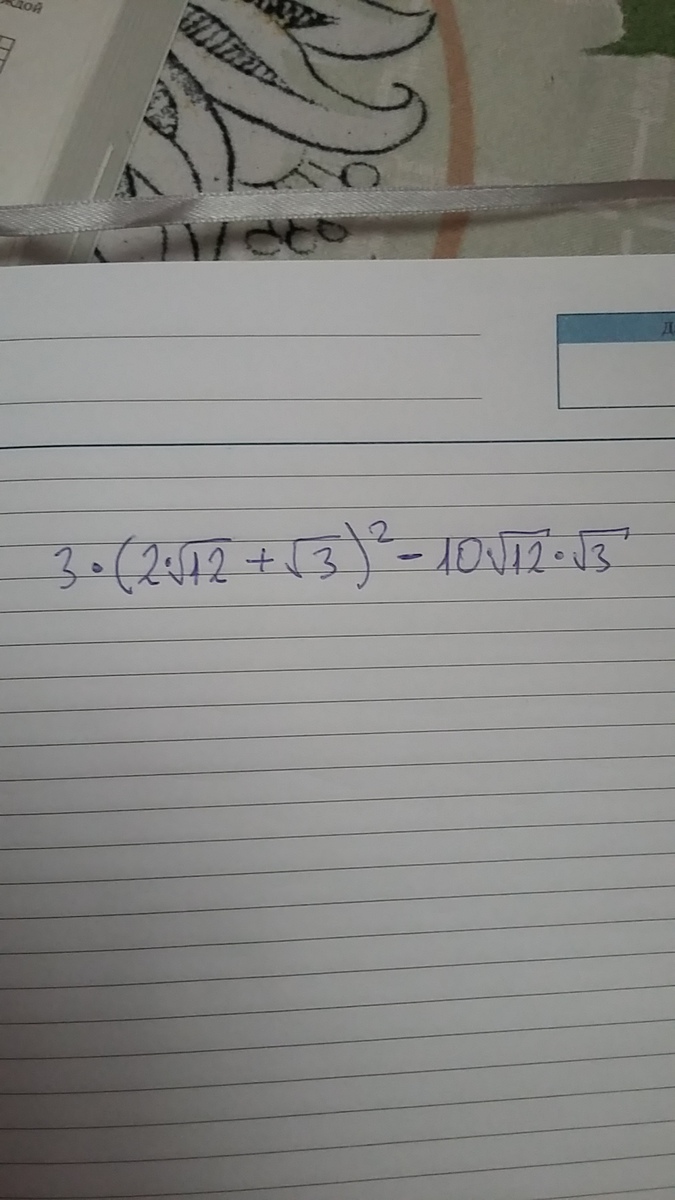 ждой
Д
3·(2·√12 + √3)² - 10√12·√3